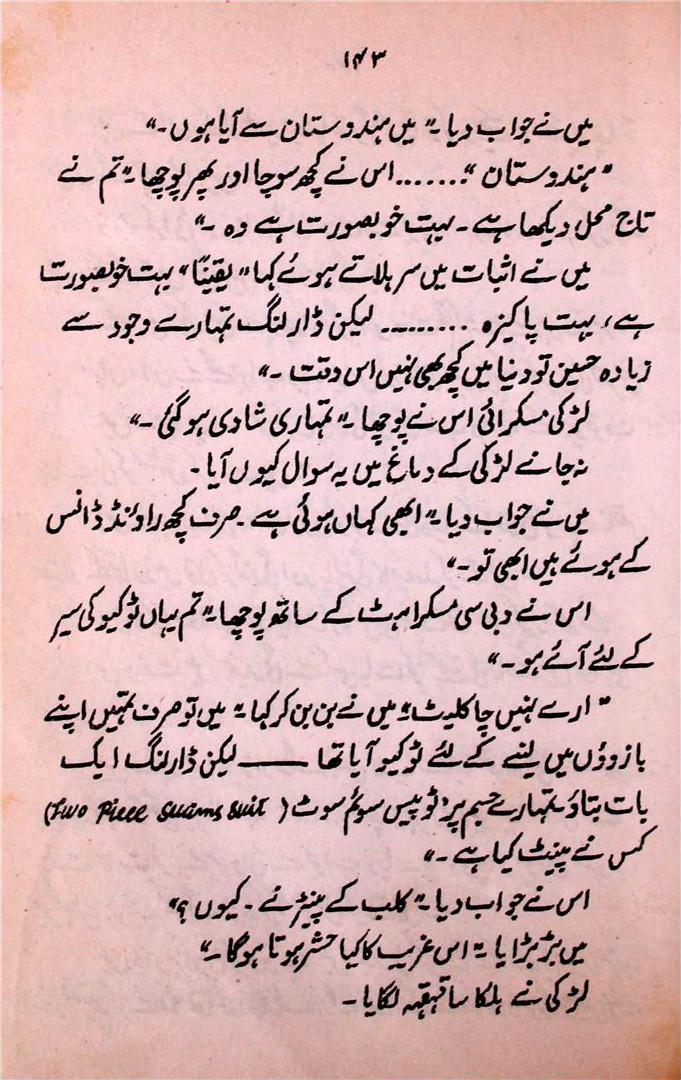 ۱۴۳
میں نے جواب دیا۔" میں ہندوستان سے آیا ہوں۔"
"ہندوستان"....... اس نے کچھ سوچا اور پھر پوچھا۔" تم نے
تاج محل دیکھا ہے۔ بہت خوبصورت ہے وہ۔"
میں نے اثبات میں سر ہلاتے ہوئے کہا "یقینًا" بہت خوبصورت
ہے، بہت پاکیزہ ......... لیکن ڈارلنگ تمہارے وجود سے
زیادہ حسین تو دنیا میں کچھ بھی نہیں اس وقت۔"
لڑکی مسکرائی اس نے پوچھا۔" تمہاری شادی ہو گئی۔"
نہ جانے لڑکی کے دماغ میں یہ سوال کیوں آیا۔
میں نے جواب دیا۔" ابھی کہاں ہوئی ہے۔ صرف کچھ راؤنڈ ڈانس
کے ہوئے ہیں ابھی تو۔"
اس نے دبی سی مسکراہٹ کے ساتھ پوچھا۔" تم یہاں ٹوکیو کی سیر
کے لئے آئے ہو۔"
"ارے نہیں چاکلیٹ" میں نے بن بن کر کہا۔" میں تو صرف تمہیں اپنے
بازوؤں میں لینے کے لئے ٹوکیو آیا تھا —— لیکن ڈارلنگ ایک
بات بتاؤ۔ تمہارے جسم پر ٹو پیس سوئم سوٹ (Two Piece Swams Suit)
کس نے پینٹ کیا ہے۔"
اس نے جواب دیا۔" کلب کے پینٹر نے۔ کیوں؟"
میں بڑبڑایا۔" اس غریب کا کیا حشر ہوتا ہوگا۔"
لڑکی نے ہلکا سا قہقہہ لگایا۔